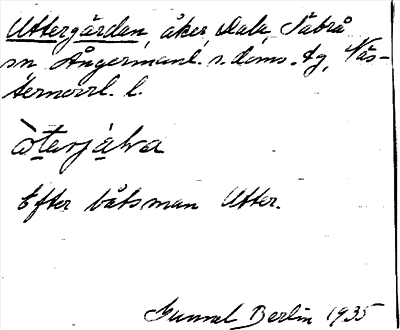 Uttergärdan, åker, Dala, Säbrå
sn Ångermanl. s. doms. tg, Väs-
ternorrl. l.
òterjäḷva
Efter båtsman Utter.
Gunnal Berlin 1935